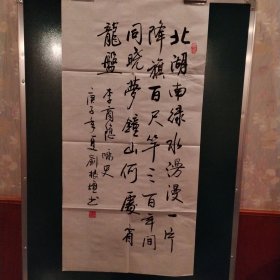 北湖南绿水漫漫一片
降旗百尺竿三百年间
同晓梦鐘山何處有
龍盤 李商隐 咏史
庚子年夏劉振书